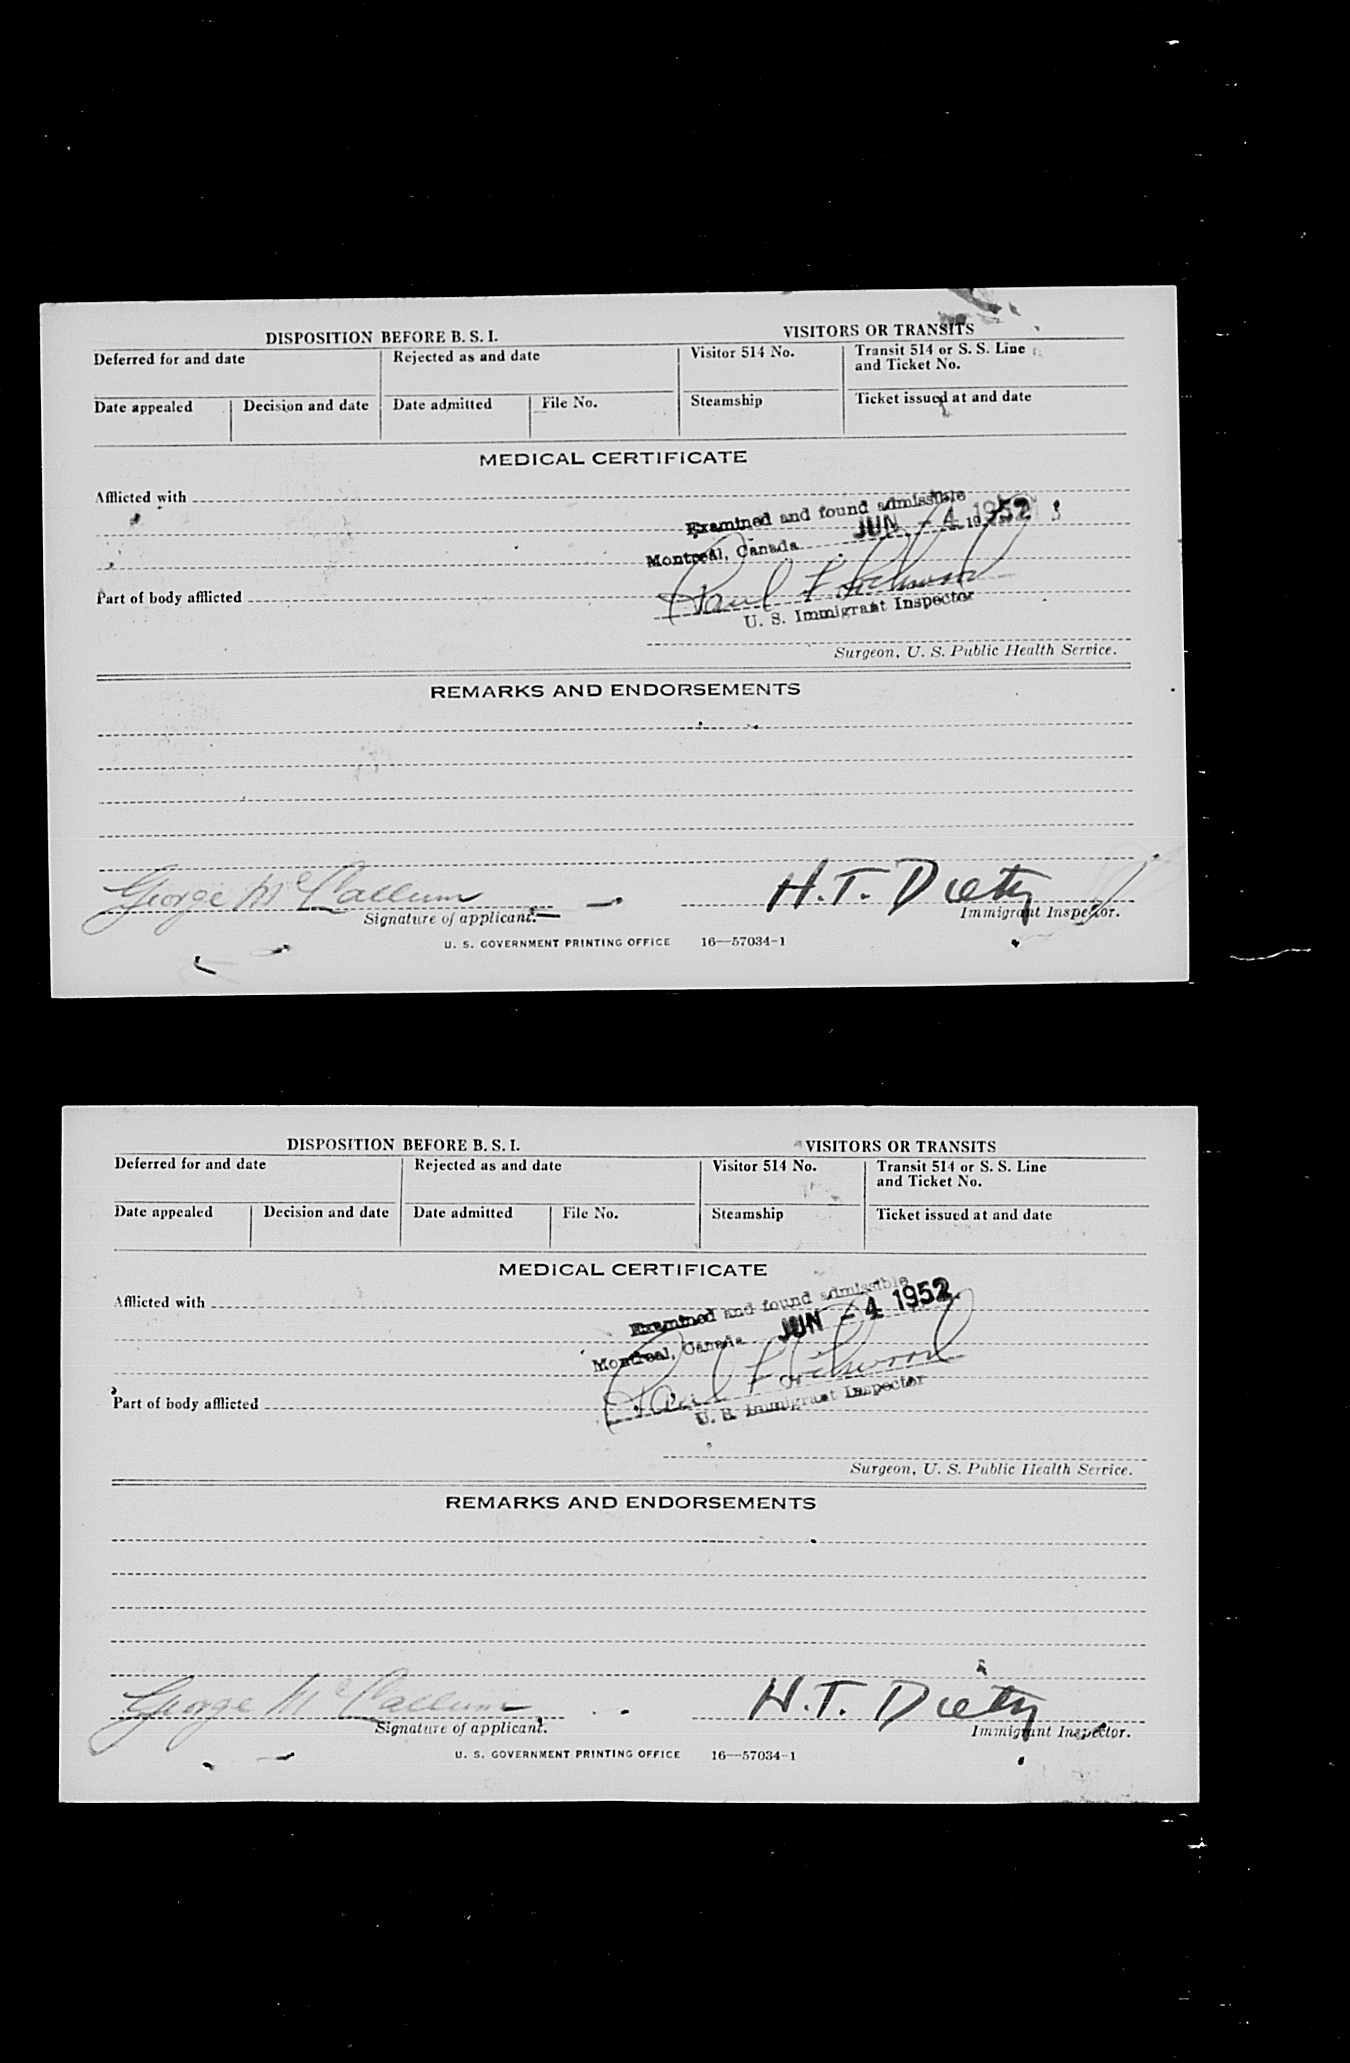 DISPOSITION BEFORE B. S. I.
VISITORS OR TRANSITS
Deferred for and date
Rejected as and date
Visitor 514 No.
Transit 514 or S. S. Line
and Ticket No.
Date appealed
Decision and date
Date admitted
File No.
Steamship
Ticket issued at and date
MEDICAL CERTIFICATE
Afflicted with
Examined and found admissible
Montreal, Canada JUN - 4 1952 19
Part of body afflicted
Paul F
U. S. Immigrant Inspector
Surgeon, U. S. Public Health Service.
REMARKS AND ENDORSEMENTS
George McCallum
H.T. Dietz
Signature of applicant.
Immigrant Inspector.
U. S. GOVERNMENT PRINTING OFFICE 16—57034-1
DISPOSITION BEFORE B. S. I.
VISITORS OR TRANSITS
Deferred for and date
Rejected as and date
Visitor 514 No.
Transit 514 or S. S. Line
and Ticket No.
Date appealed
Decision and date
Date admitted
File No.
Steamship
Ticket issued at and date
MEDICAL CERTIFICATE
Afflicted with
Examined and found admissible
Montreal, Canada JUN - 4 1952
Paul F
Part of body afflicted
U. S. Immigrant Inspector
Surgeon, U. S. Public Health Service.
REMARKS AND ENDORSEMENTS
George McCallum
H.T. Dietz
Signature of applicant.
Immigrant Inspector.
U. S. GOVERNMENT PRINTING OFFICE 16—57034-1